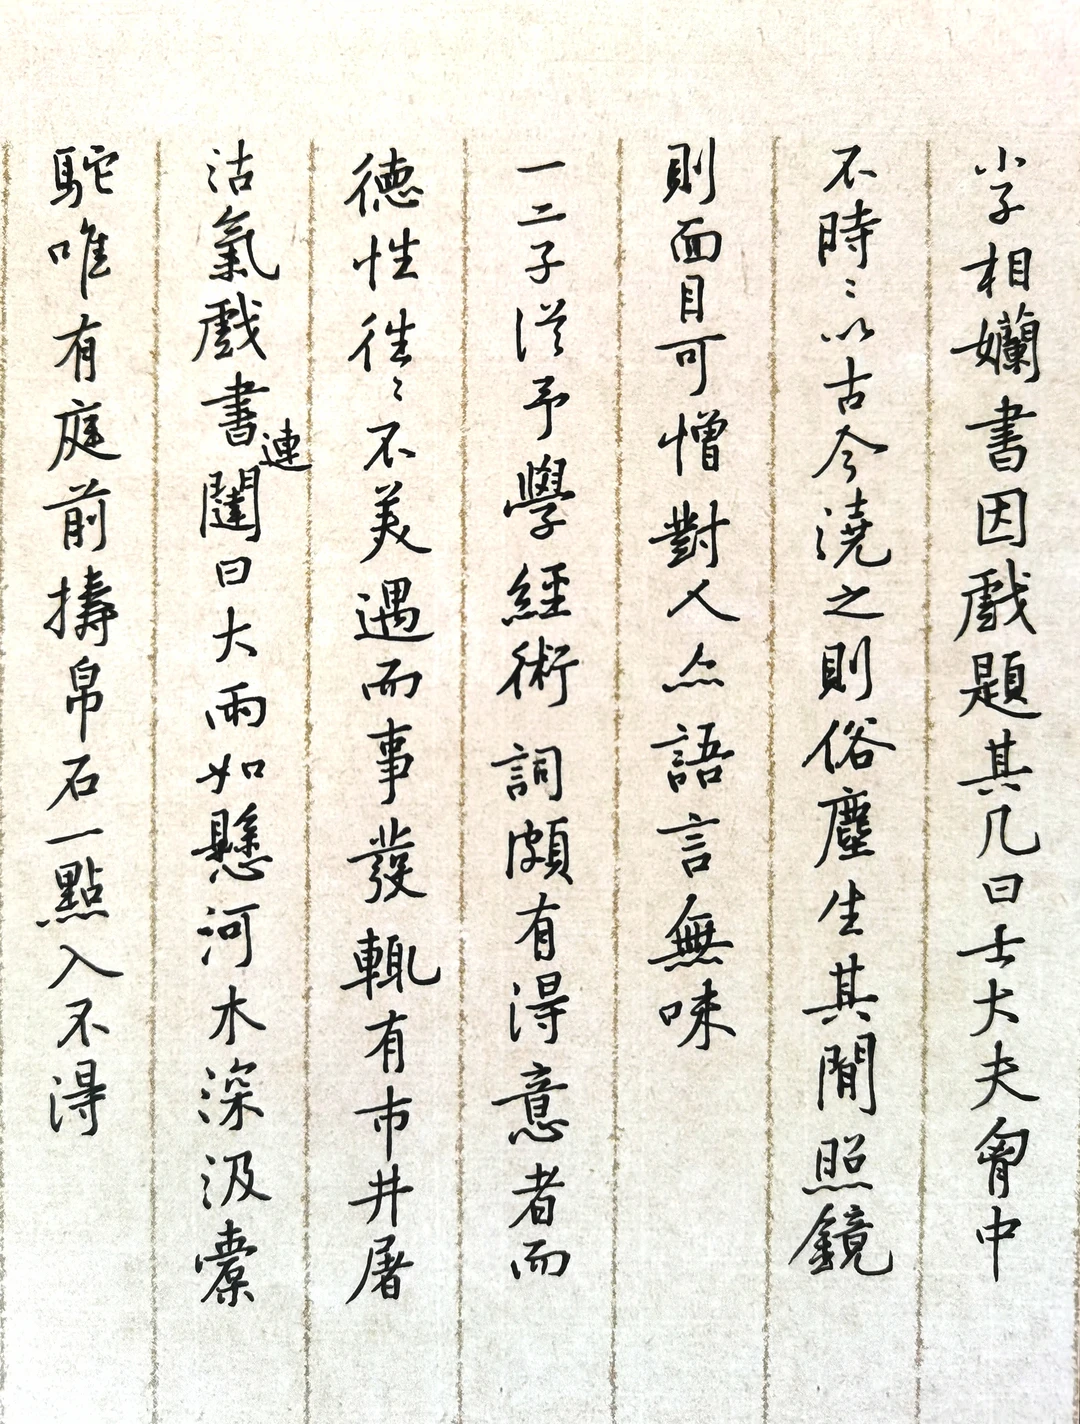 小子相嬾書因戲題其几曰士大夫胷中
不時〻以古今澆之則俗塵生其閒照鏡
則面目可憎對人亦語言無味
一二子從予學經術詞頗有得意者而
德性往〻不美遇而事發輒有市井屠
沽氣戲書連闥曰大雨如懸河木深汲橐
駝唯有庭前擣帛石一點入不得